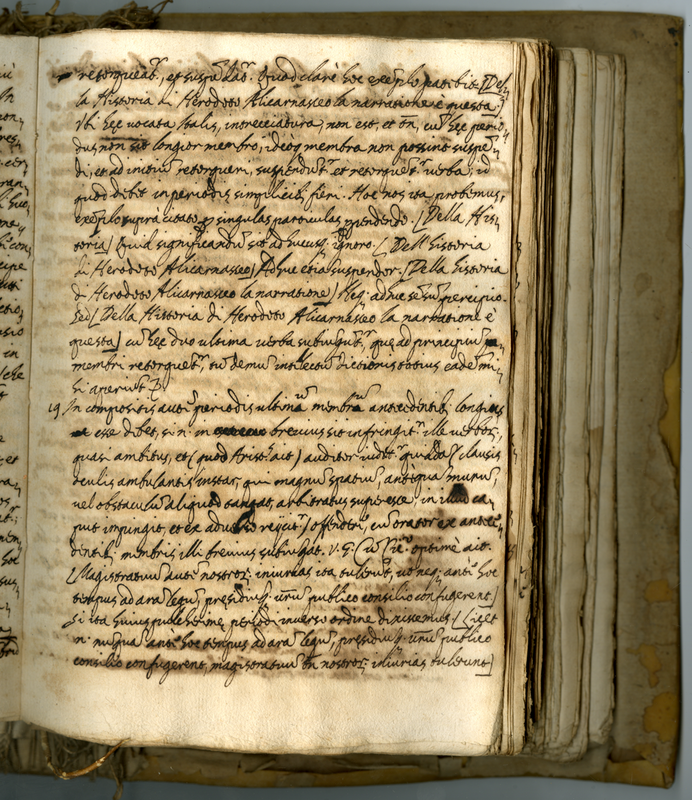 retorqueat.r, et suspēdat.r Quod clarè hoc exēplo patebit [Del
la Historia di Herodoto Alicarnasseo la narratione è questa.
Vbi hęc vocata Italis, intrecciatura, non est, et tn̄, cū hęc perio
dus non sit longior membro, ideoq; membra non possint suspē
di, et ad initiū retorqueri, suspendūt.r et retorquēt.r verba; id
quod debet in periodis simplicib; fieri. Hoc nos ita probemus,
exēplo suprà citato p singulas particulas
[Della His
toria] Quid significandū sit adhucusq; ignoro. [Dell'historia
di Herodoto Alicarnasseo] Adhuc etiā suspendor. [Della historia
di Herodoto Alicarnasseo la narratione] Neq; adhuc sēsū percipio.
Sed [Della Historia di Herodoto Alicarnasseo la narratione è
questa] cū hęc duo ultima verba subiungūt.r, que ad principiū
membri retorquēt.r, tū demū intellectū dictionis totius eadē mi
hi aperiūt.
19 In compositis autē periodis ultimū membrū antecedentib; longius
esse debet, si n. in brevius sit infringit.r ille
quasi ambitus, et (quod Arist. ait) auditor
clausis
oculis ambulantis instar, qui magnū spatiū, antequā murū,
vel obstaculū aliquod tangat, arbitratus superesse, in illud ca
put impingit, et ex adverso reijcit.r) offendet.r, cū orator ex antece
dentib; membris illi brevius subiungat. V. G. Cic.
optimè ait.
[Magistratuū autē nostror; iniurias ita tulerūt, ut neq; antè hoc
tempus ad arā legū, presidiūq; vr̄ū publico consilio confugerent]
Si ita huius pulcherrimę periodi inverso ordine dixissemus [Licet
n. nusquā antè hoc tempus ad arā legū, presidiūq; vr̄ū publico
consilio confugerent, magistratuū tn̄ nostror; iniurias tulerunt]